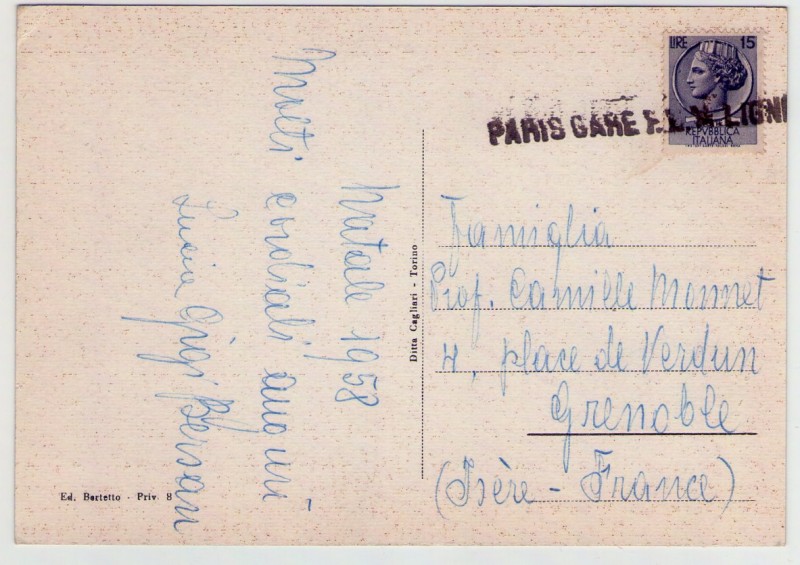 Natale 1958
Molti cordiali auguri
Lucia Gigi Bersan
Ed. Bertetto - Priv. 8
Ditta Cagliari - Torino
LIRE 15
REPVBBLICA
ITALIANA
PARIS GARE P.L.M. LIGN
Famiglia
Prof. Camille Monnet
4, place de Verdun
Grenoble
(Isère - France)